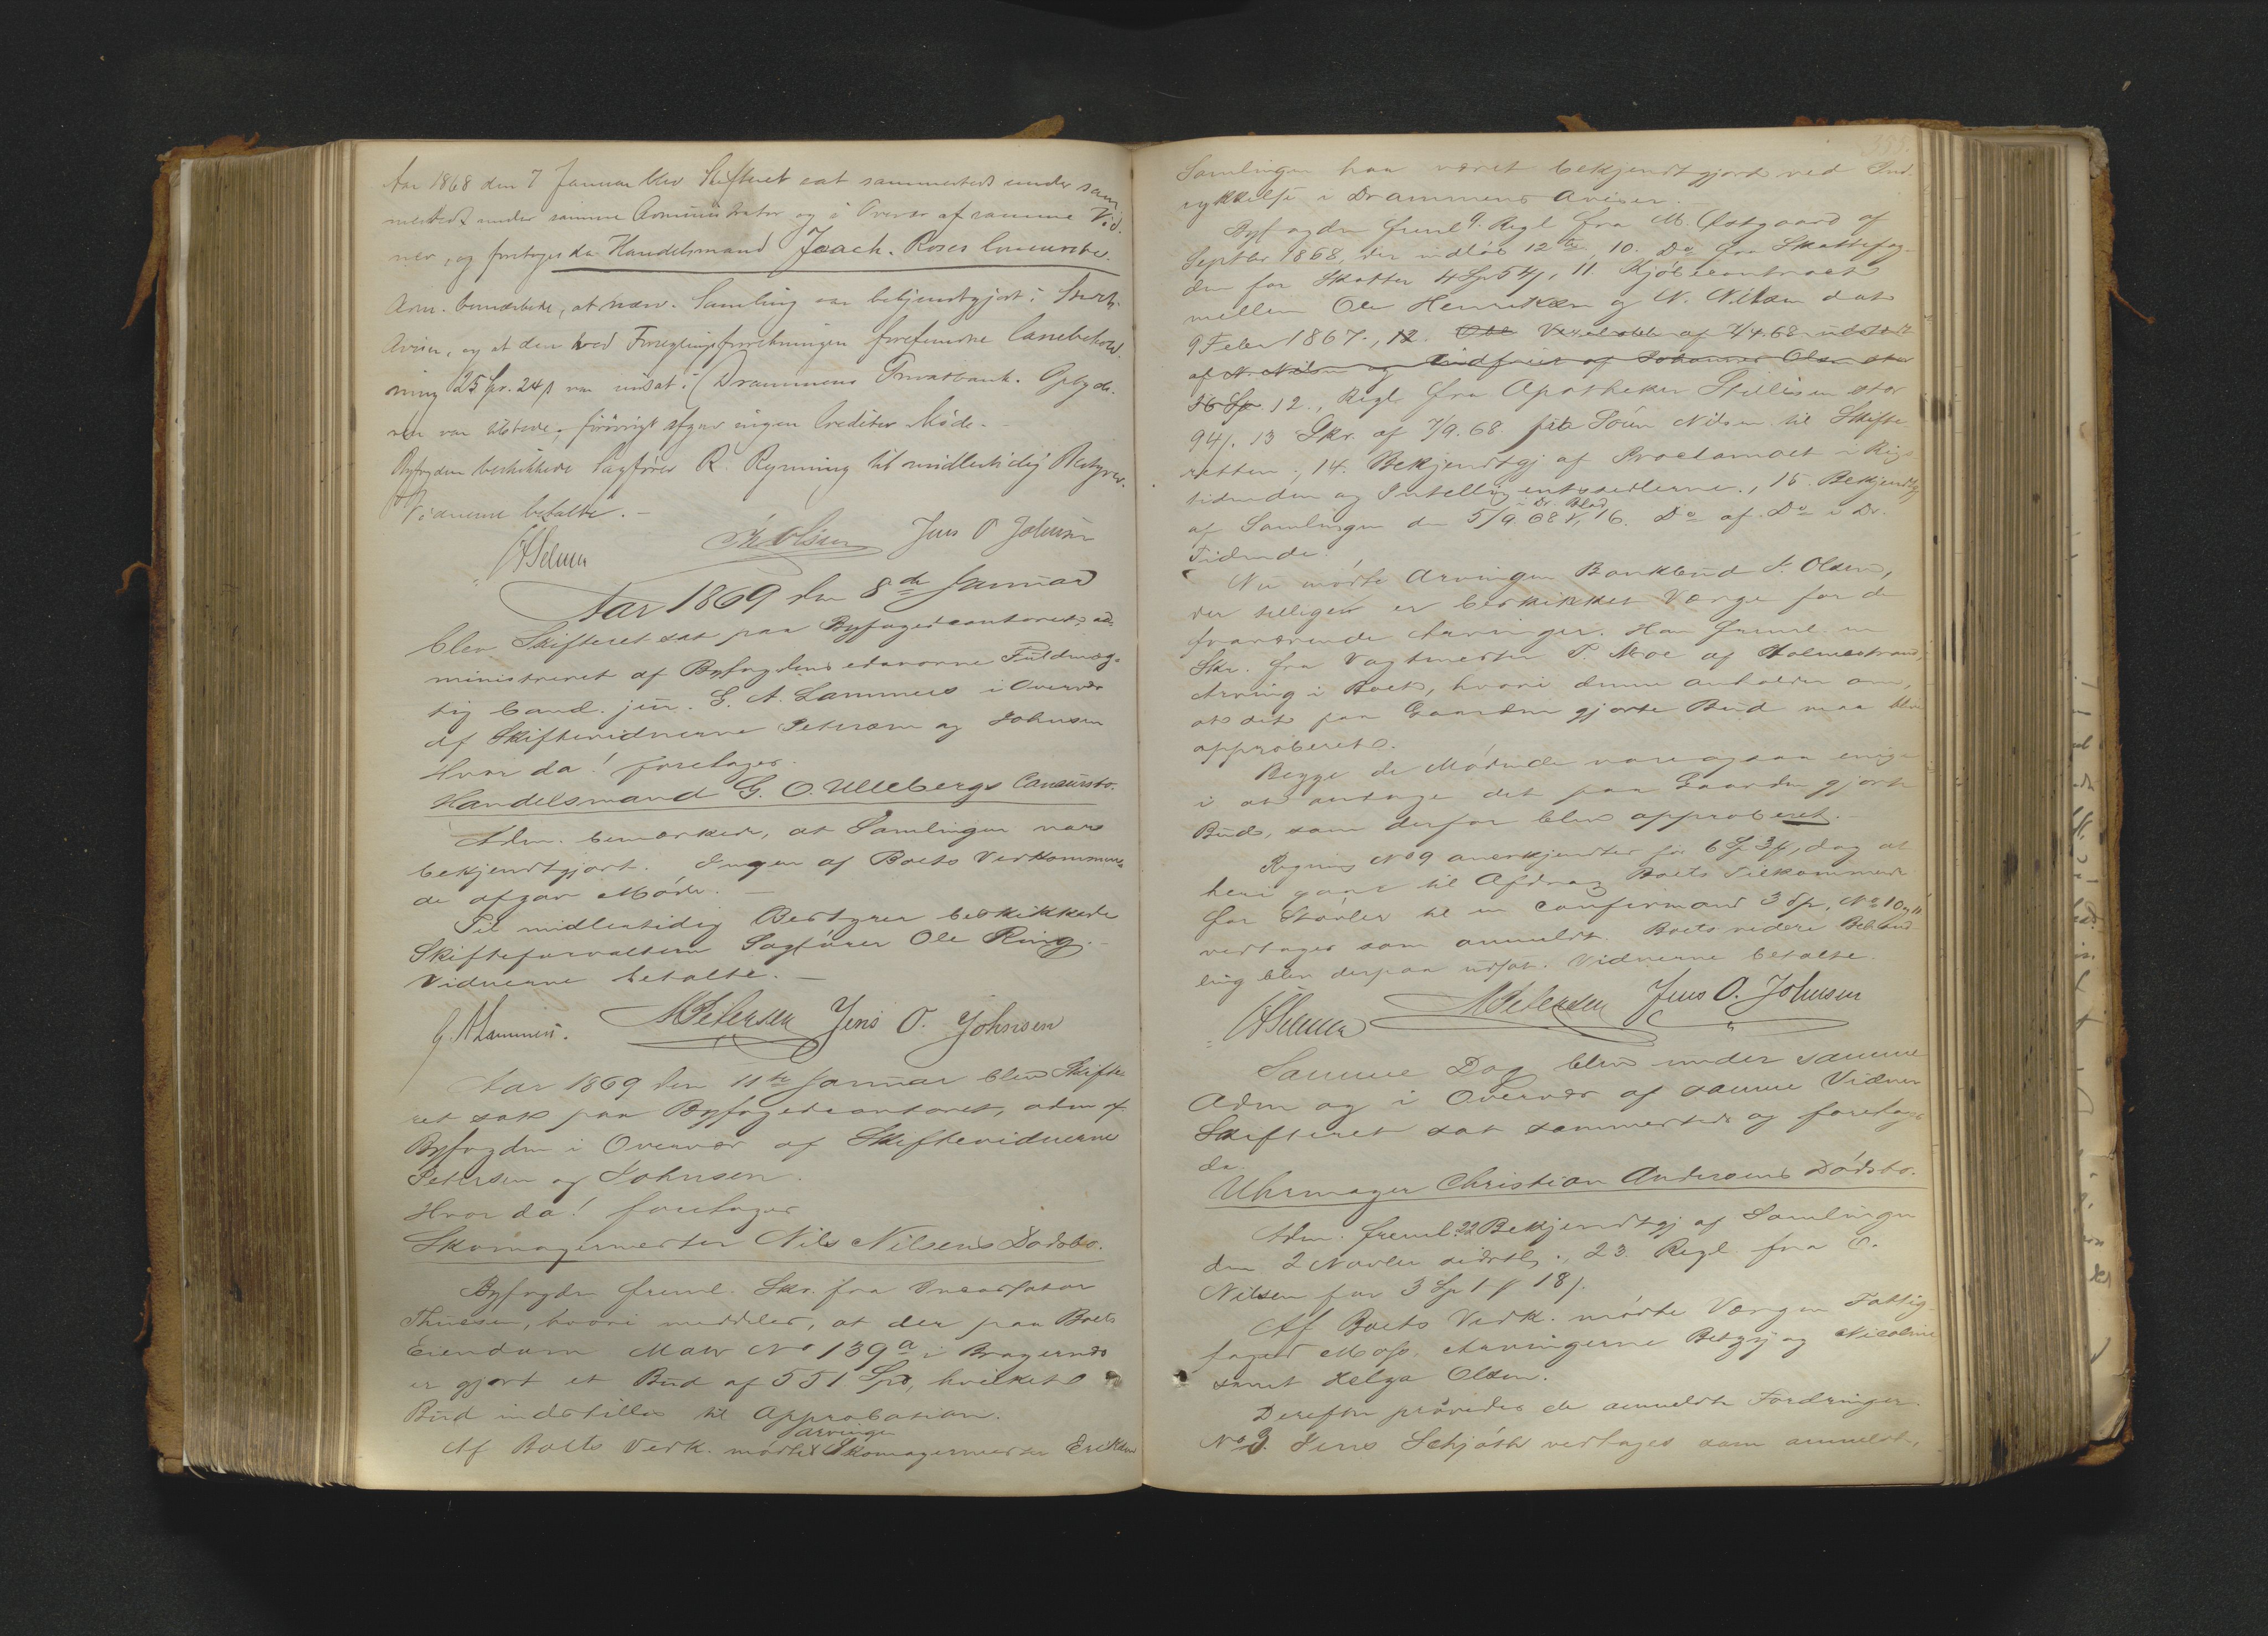 Aar 1868 den 7 Januar blev Skifteret sat sammesteds under sam
mesteds under samme Administrator og i Overvær af samme Vid-
ner, og foretoges da Handelsmand Joach. Roses Concursbo.
Adm. bemærkede, at nærv. Samling var bekjendtgjort i
Aviser, og at den ved Forseglingsforretningen forefundne Cassebehold-
ning 25 Spd. 24 s var indsat i Drammens Privatbank.
var tilstede, forövrigt afgav ingen Creditor Möde.
Byfogden beskikkede Sagförer R. Rynning til midlertidig Bestyrer.
Vidnerne betalte.
Jens O Johnsen
Aar 1869 den 8de Januar
blev Skifteret sat paa Byfogedcontoret, ad-
ministreret af Byfogdens edsvorne Fuldmæg-
tig Cand. jur. G. A. Lammers i Overvær
af Skiftevidnerne Petersen og Johnsen
Hvor da! foretages
Handelsmand G. O. Ullebergs Concursbo.
Adm. bemærkede, at Samlingen var
bekjendtgjort. Ingen af Boets Vedkommen-
de afgav Möde.
Til midlertidig Bestyrer beskikkede
Skifteforvalteren Sagförer Ole Ring.
Vidnerne betalte.
G. A. Lammers. M Petersen Jens O. Johnsen
Aar 1869 den 11te Januar blev Skifte
ret sat paa Byfogedcontoret, adm af
Byfogden i Overvær af Skiftevidnerne
Petersen og Johnsen.
Hvor da! foretages
Skomagermester Nils Nilsens Dødsbo.
Byfogden freml. Skr. fra Incassator
Thuesen, hvori meddeles, at der paa Boets
Eiendom Matr No 139 a i Bragernes
er gjort et Bud af 551 Spd, hvilket
Bud indstilles til Approbation.
Af Boets Vedk. mødte Arvingen Skomagermester Eriksen
Samlingen har været bekjendtgjord ved Ind-
rykkelse i Drammens Aviser.
Byfogden freml 9. Regl fra M. Østgaard af
Septbr 1868, der udløb 12te, 10. Do fra Skattefog-
den for Skatter 4 Sp 54 s, 11. Kjöbecontract
mellem Ole Henriksen og N. Nilsen dat
9 Febr 1867., 12. af 7/4.68 udstedt
af N. Nilsen og indfriet af Johannes Olsen stor
36 Sp. 12., Regl fra Apotheker stor
94 s. 13 Skr. af 7/9.68 fra Nilsen til Skifte
retten; 14. Bekjendtgj af Proclamaet i Rigs
tidenden og Intelligentssedlerne., 15. Bekjendtgj
af Samlingen den 5/9.68 i Dr. Blad, 16. Do af Do i Dr.
Tidende.
Nu mødte Arvingen Bankbud J. Olsen,
der tilligen er beskikket Værge for de
fraværende Arvinger. Han freml en
Skr. fra Vagtmester P. Moe af Holmestrand,
Arving i Boet, hvori denne anholder om,
at det paa Gaarden gjorte Bud maa blive
approberet.
Begge de Mødende vare ogsaa enige
i at antage det paa Gaarden gjorte
Bud, som derfor blev approberet.
Regning No 9 anerkjendtes for 6 Sp 3 s, dog at
heri gaar til Afdrag Boets Tilkommende
for Støvler til en Confirmand 3 Sp, No 10 og 11
vedtages som anmeldt. Boets videre Behand-
ling blev derpaa udsat. Vidnerne betalte.
M Petersen Jens O. Johnsen
Samme Dag blev under samme
Adm og i Overvær af samme Vidner
Skifteret sat sammesteds og foretages
da
Uhrmager Christian Andersens Dødsbo.
Adm. freml. 22 Bekjendtgj af Samlingen
den 2 Novbr sidstl., 23. Regl. fra C.
Nilsen for 3 Sp 1 s 18 s.
Af Boets Vedk. mødte Værgen Fattig-
foged Moss. Arvingerne Betzy og Nicoline
samt Helga Olsen.
Derefter prøvedes de anmeldte Fordringer.
No 3. Jens Schjøth vedtages som anmeldt,